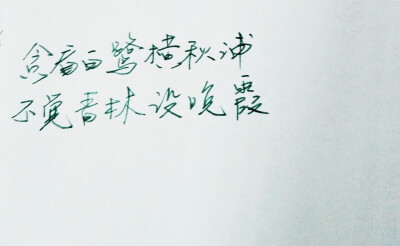 贪看白鹭横秋浦
不觉青林没晚霞